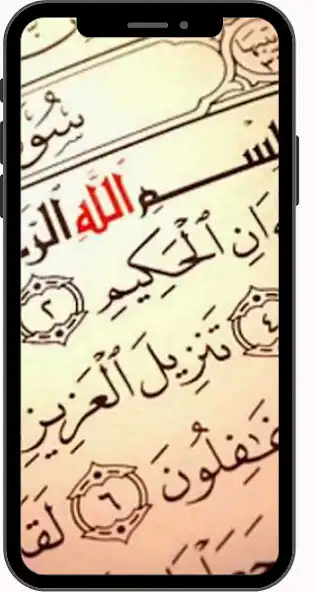 سُورَ
بِسْمِ اللَّهِ الرَّ
ءَانِ الْحَكِيمِ ٢
٤ تَنزِيلَ الْعَزِيزِ
غَٰفِلُونَ ٦ لَقَ